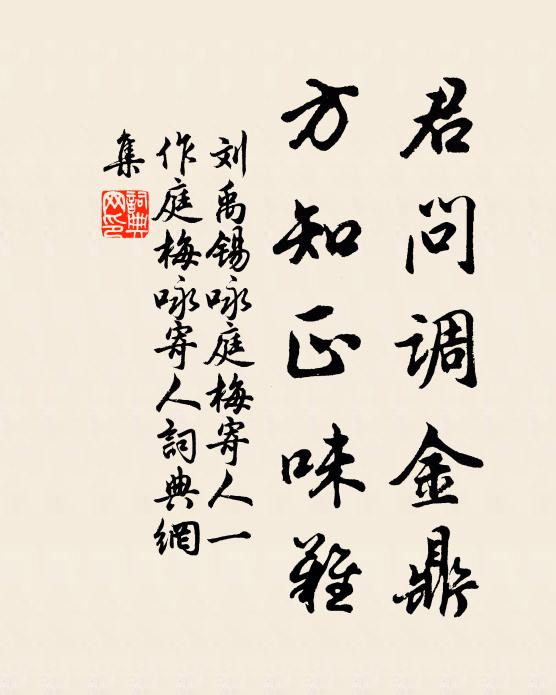 君问调金鼎
方知正味难
刘禹锡咏庭梅寄人一
作庭梅咏寄人詞典網
集
詞典
网印